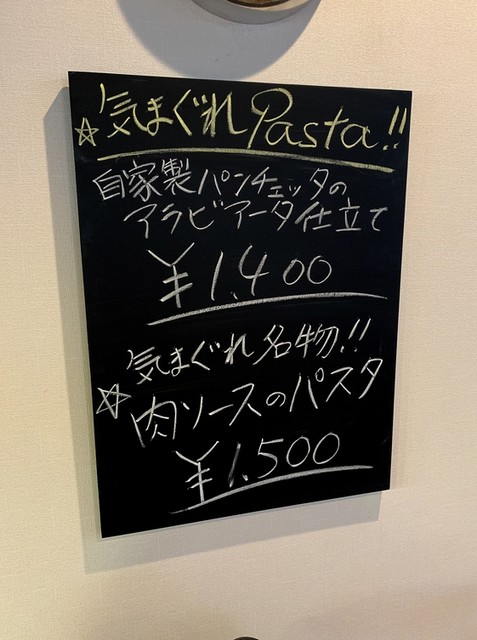 ☆気まぐれPasta!!
自家製パンチェッタの
アラビアータ仕立て
¥1.400
気まぐれ名物!!
☆肉ソースのパスタ
¥1.500